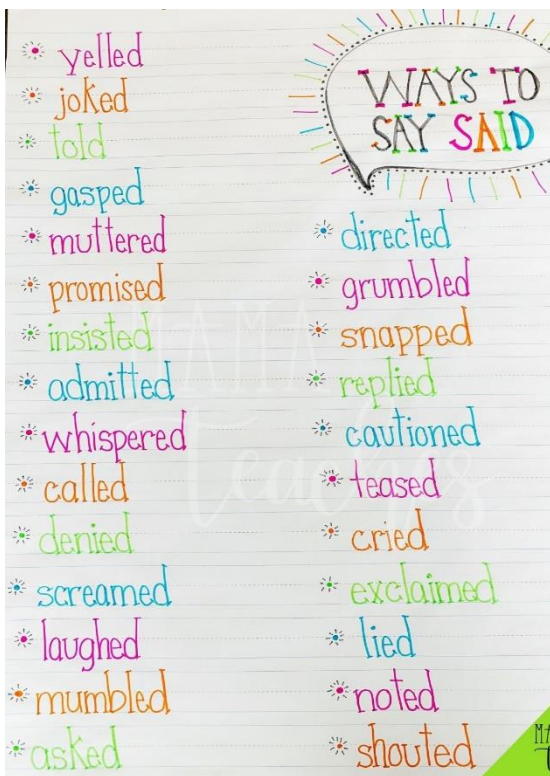 WAYS TO
SAY SAID
yelled
joked
told
gasped
muttered
promised
insisted
admitted
whispered
called
denied
screamed
laughed
mumbled
asked
directed
grumbled
snapped
replied
cautioned
teased
cried
exclaimed
lied
noted
shouted
MAMA
teaches